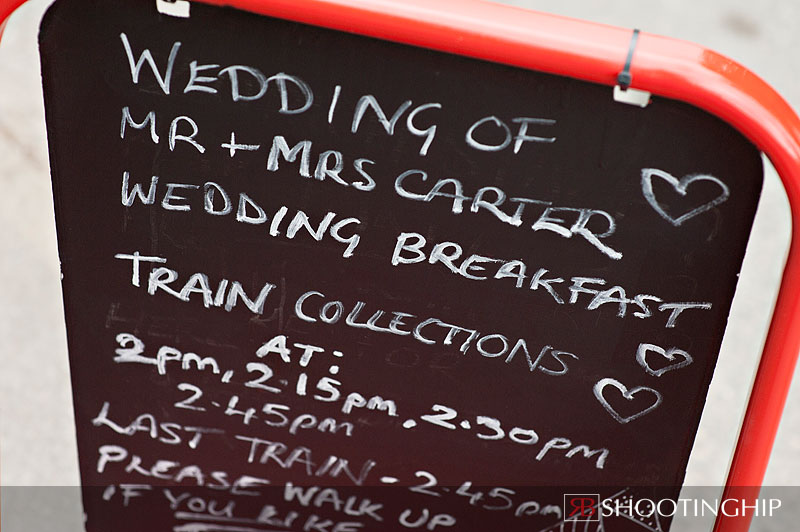 WEDDING OF
MR + MRS CARTER
WEDDING BREAKFAST
TRAIN COLLECTIONS
AT:
2pm, 2.15pm, 2.30pm
2.45pm
LAST TRAIN - 2.45pm
PLEASE WALK UP
IF YOU LIKE
SHOOTINGHIP